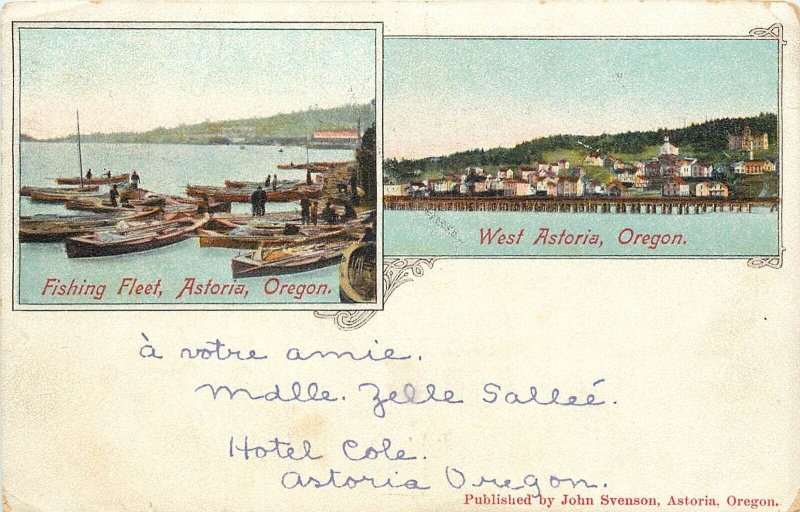 Fishing Fleet, Astoria, Oregon.
West Astoria, Oregon.
à votre amie.
Mdlle. Zelle Salleé.
Hotel Cole.
Astoria Oregon.
Published by John Svenson, Astoria, Oregon.